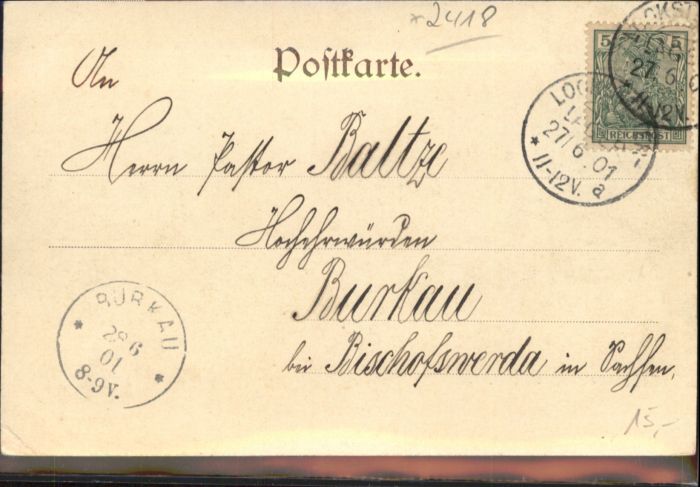 *2418
Postkarte.
An
Herrn Pastor Baltze
Hochehrwürden
Burkau
bei Bischofswerda in Sachsen.
5 5
REICHSPOST
27.6
*11-12V.
LOC
27/6.01
*11-12V. a
BURKAU
28 6
01
8-9V.
15,-